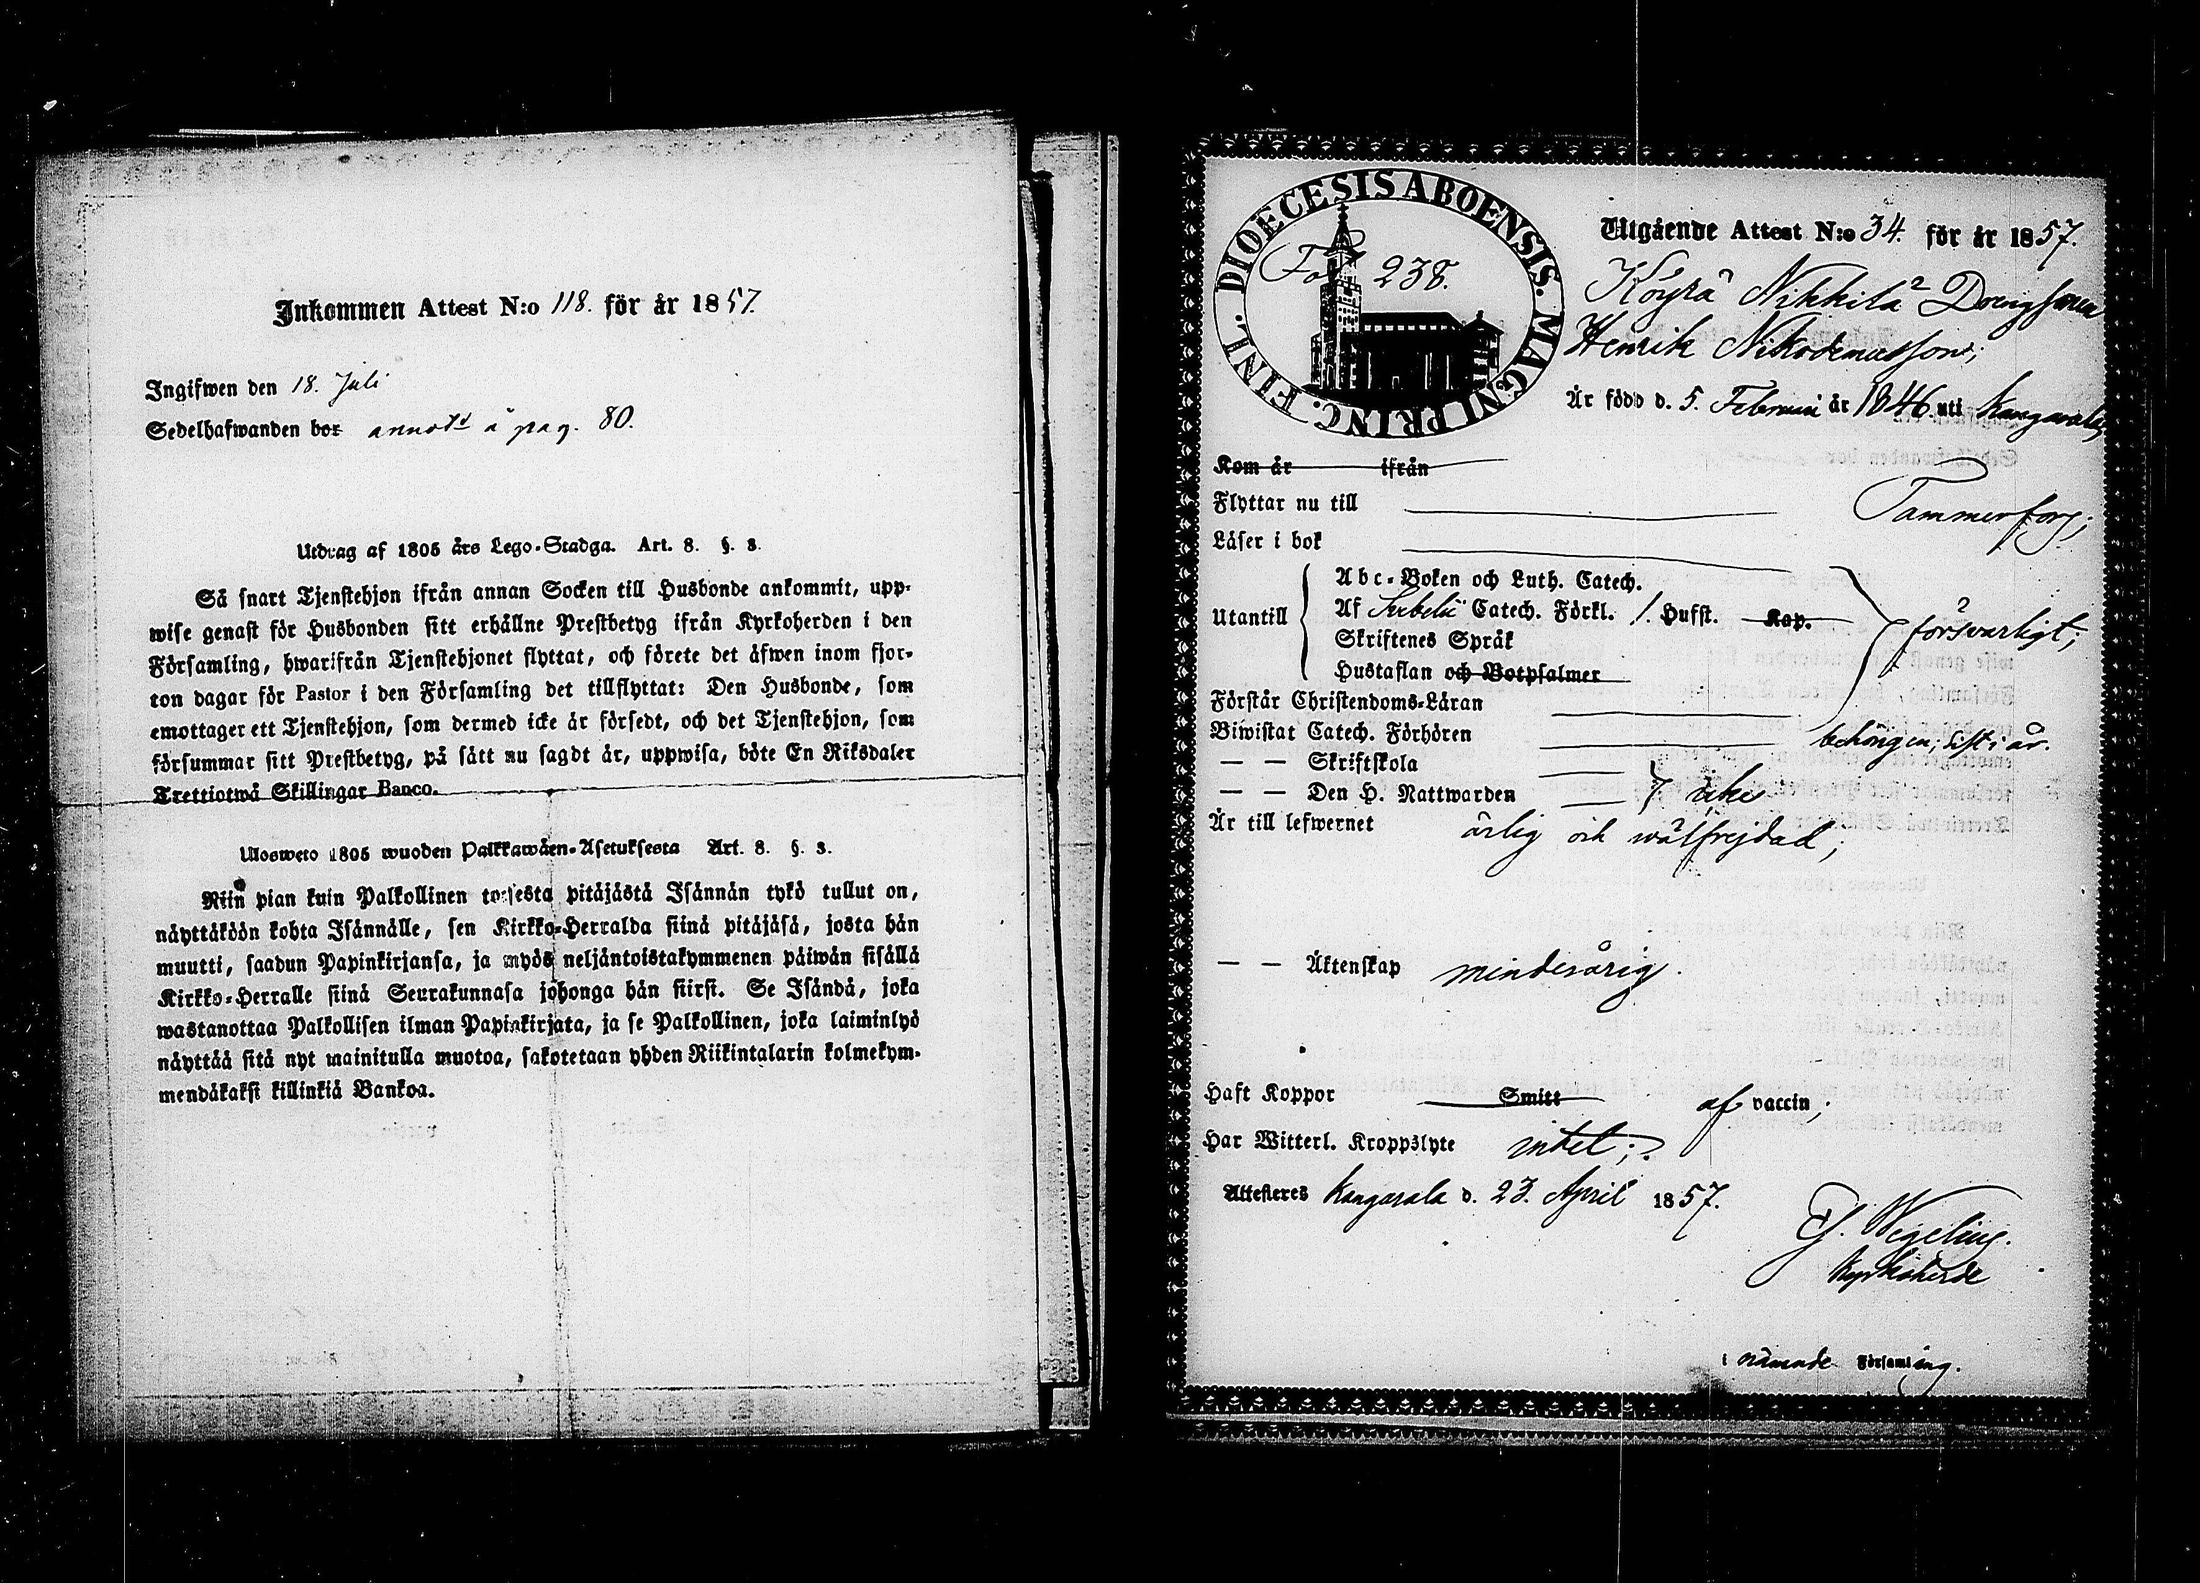 Inkommen Attest N:o 118. för år 1857.
Ingifwen den 18. Juli
Sedelhafwanden bor annot:d å pag. 80.
Utdrag af 1805 års Lego-Stadga. Art. 8. §. 3.
Så snart Tjenstehjon ifrån annan Socken till Husbonde ankommit, upp-
wise genast för Husbonden sitt erhållne Prestbetyg ifrån Kyrkoherden i den
Församling, hwarifrån Tjenstehjonet flyttat, och förete det äfwen inom fjor-
ton dagar för Pastor i den Församling det tillflyttat: Den Husbonde, som
emottager ett Tjenstehjon, som dermed icke är försedt, och det Tjenstehjon, som
försummar sitt Prestbetyg, på sätt nu sagdt är, uppwisa, böte En Riksdaler
Trettiotwå Skillingar Banco.
Ulosweto 1805 wuoden Palkkawäen-Asetuksesta Art. 8. §. 3.
Niin pian kuin Palkollinen toisesta pitäjästä Isännän tykö tullut on,
näyttäköön kohta Isännälle, sen Kirkko-Herralda siinä pitäjäsä, josta hän
muutti, saadun Papinkirjansa, ja myös neljäntoistakymmenen päiwän sisällä
Kirkko-Herralle siinä Seurakunnasa johonga hän siirsi. Se Isändä, joka
wastanottaa Palkollisen ilman Papinkirjata, ja se Palkollinen, joka laiminlyö
näyttää sitä nyt mainitulla muotoa, sakotetaan yhden Riikintalarin kolmekym-
mendäkaksi killinkiä Bankoa.
DIOECESIS ABOENSIS. MAGNI PRINC. FINL.
Fol 238.
Utgående Attest N:o 34. för år 1857.
Köyrä Nikkilä Drengsonen
Henrik Nikodemusson;
Är född d. 5. Februari år 1846. uti Kangasala;
Kom år ifrån
Flyttar nu till Tammerfors;
Läser i bok
Utantill
Abc-Boken och Luth. Catech.
Af Svebelii Catech. Förkl. 1. Hufst. Kap.
Skriftenes Språk
Hustaflan och Botpsalmer
försvarligt;
Förstår Christendoms-Läran
Biwistat Catech. Förhören behörigen, sist i år.
— — Skriftskola
— — Den H. Nattwarden } icke
Är till lefwernet ärlig och wälfrejdad;
— — Äktenskap minderårig.
Haft Koppor Smitt af vaccin;
Har Witterl. Kroppslyte intet;
Attesteres Kangasala d. 23. April 1857.
Wegelius.
Kyrkoherde
i nämnde Församling.